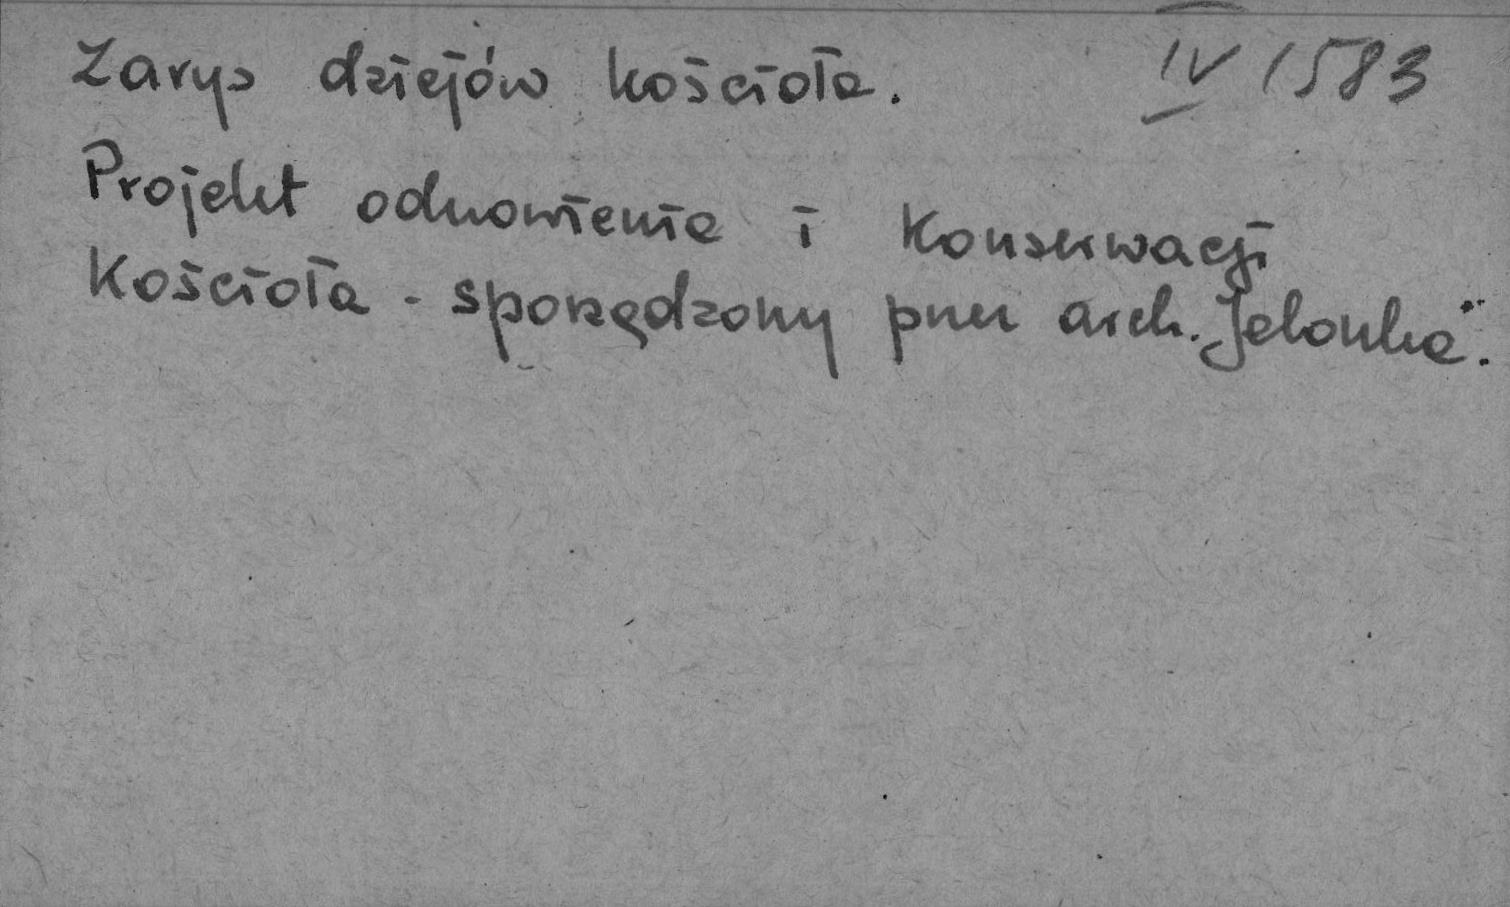 Zarys dziejów kościoła. IV 1583
Projekt odnowienia i Konserwacji
Kościoła - sporządzony przez arch. Jelonka".